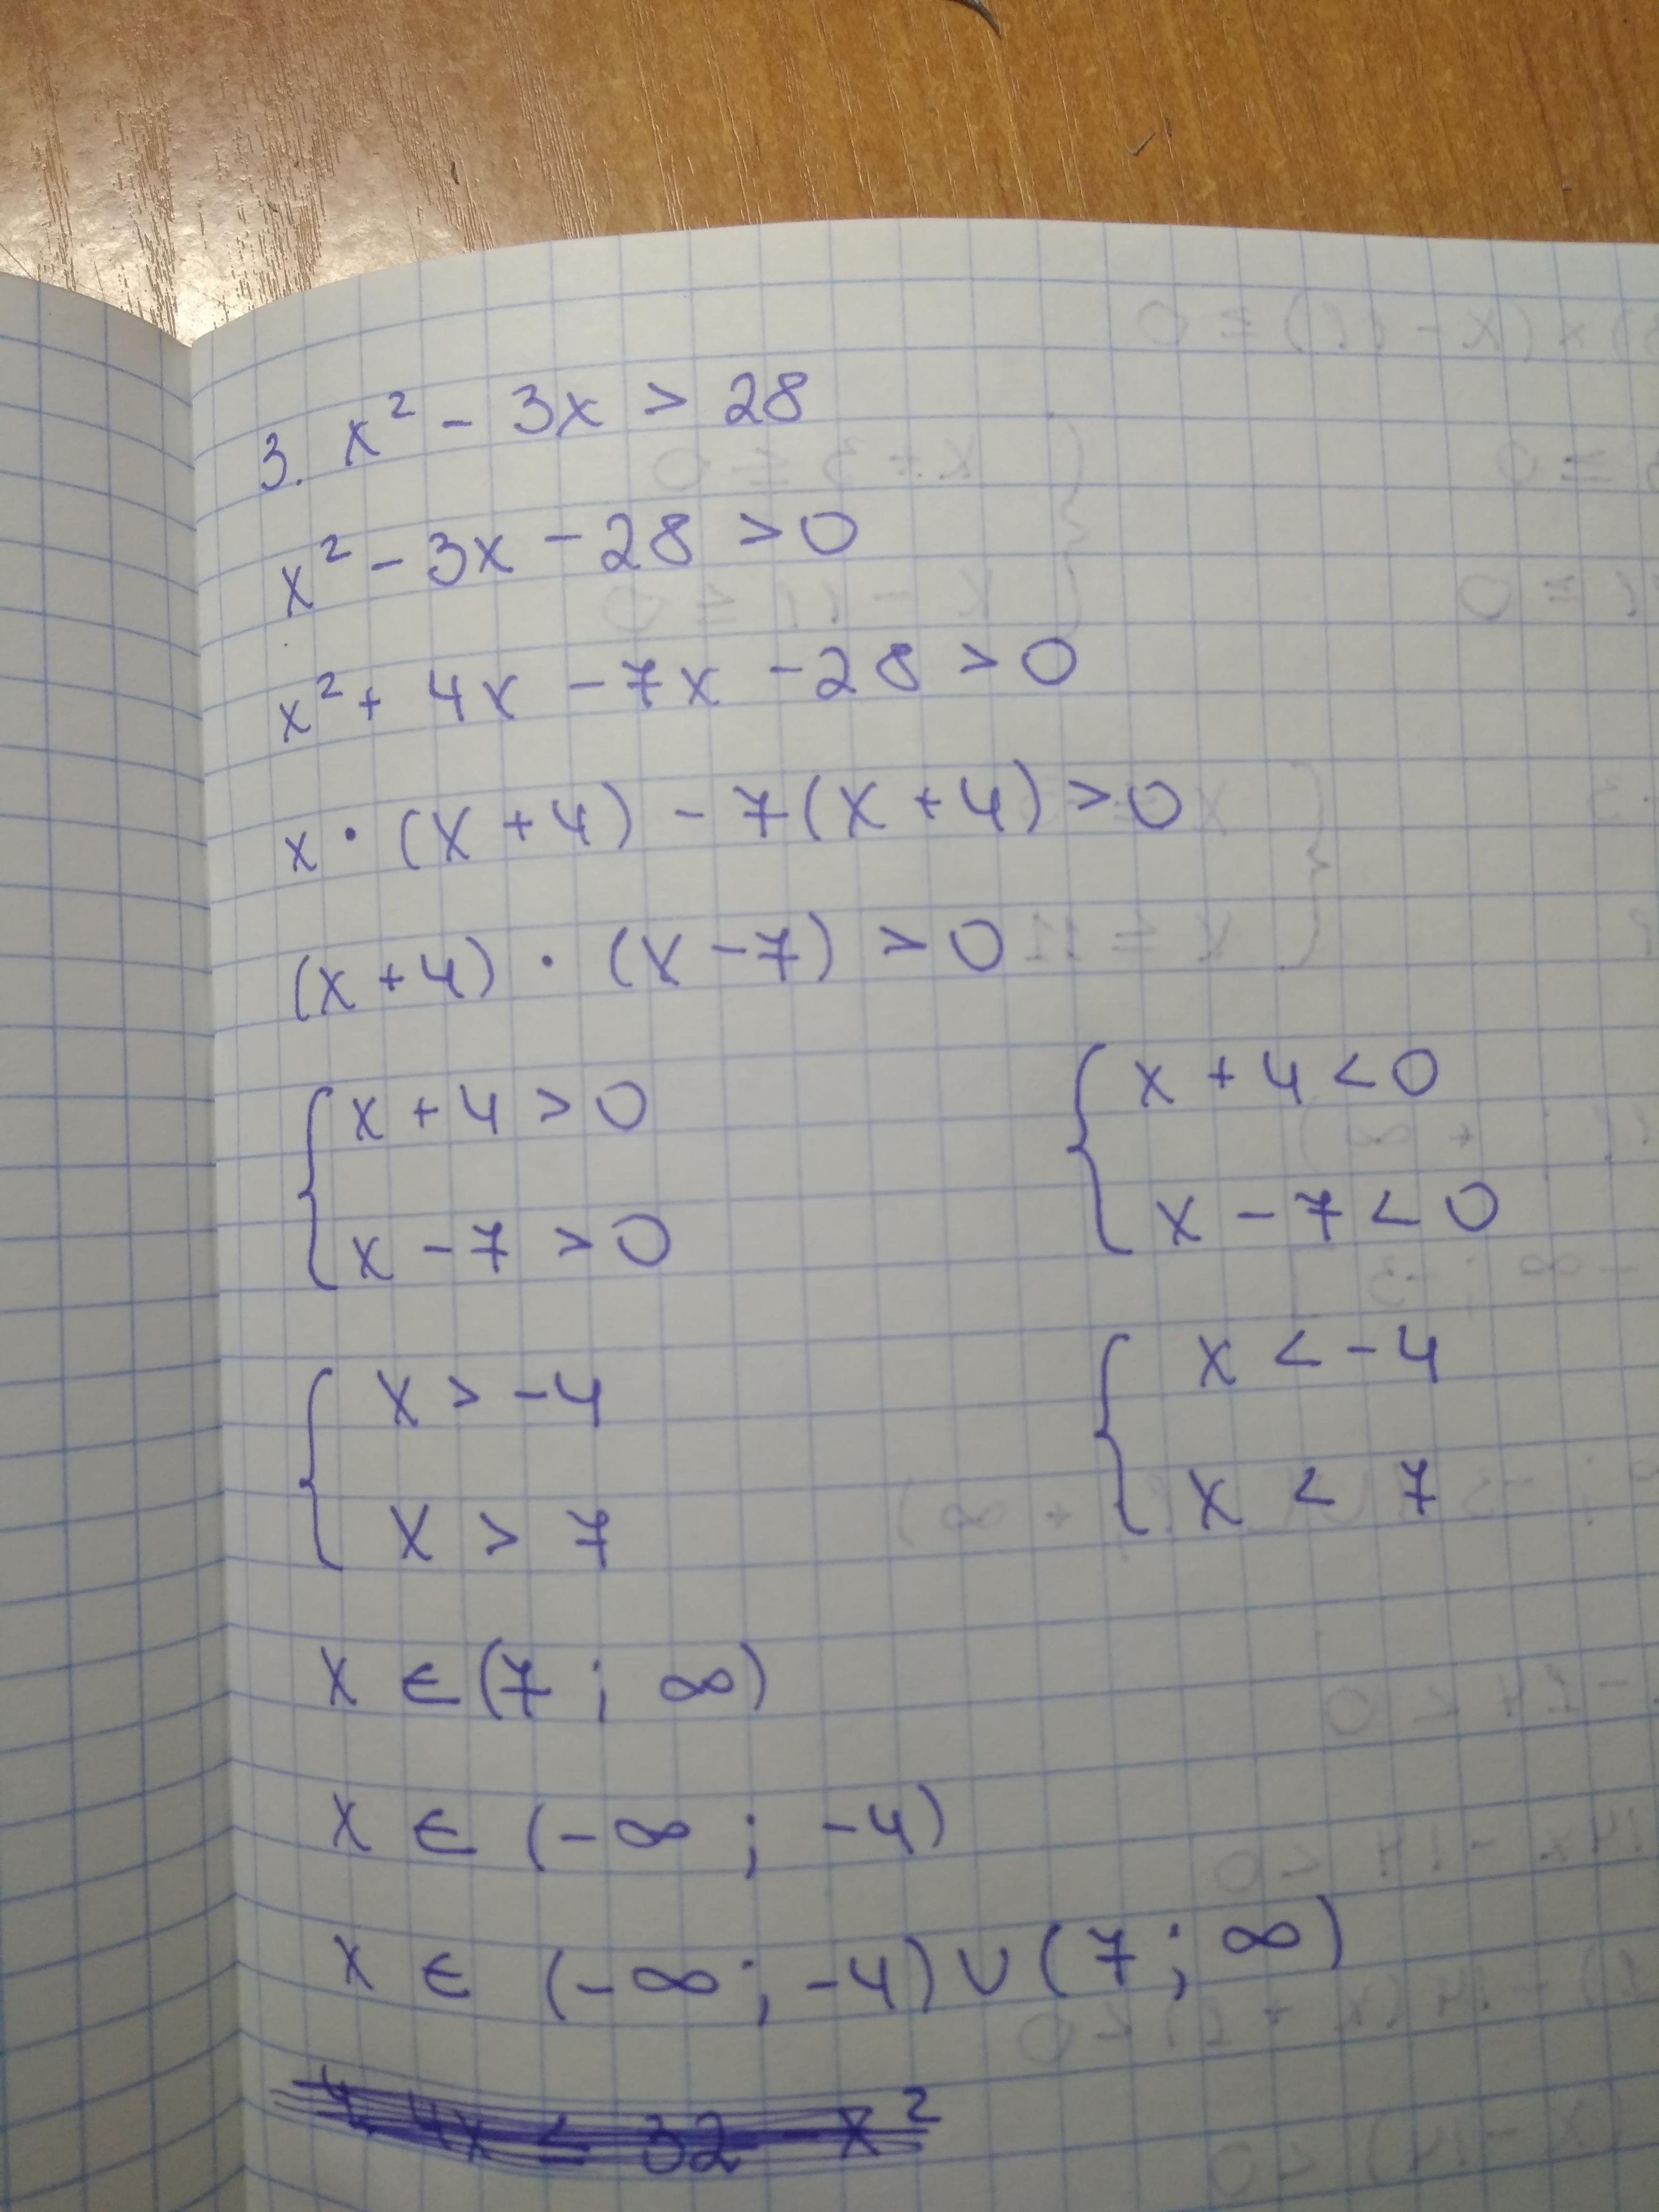 3. x² - 3x > 28
x² - 3x - 28 > 0
x² + 4x - 7x - 28 > 0
x · (x + 4) - 7(x + 4) > 0
(x + 4) · (x - 7) > 0
{ x + 4 > 0
x - 7 > 0
{ x + 4 < 0
x - 7 < 0
{ x > -4
x > 7
{ x < -4
x < 7
x ∈ (7 ; ∞)
x ∈ (-∞ ; -4)
x ∈ (-∞ ; -4) ∪ (7 ; ∞)